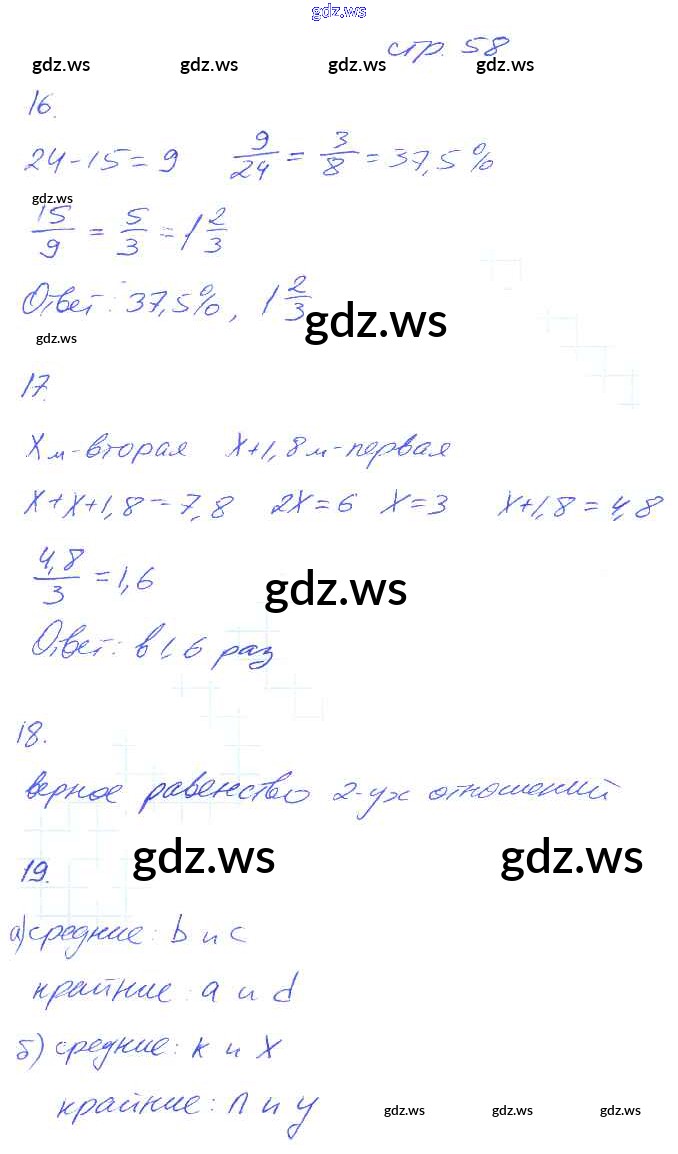 gdz.ws
стр. 58
gdz.ws gdz.ws gdz.ws gdz.ws
16.
24-15=9 9/24 = 3/8 = 37,5%
gdz.ws
15/9 = 5/3 = 1 2/3
Ответ: 37,5%, 1 2/3
gdz.ws
gdz.ws
17.
Xм-вторая X+1,8м-первая
X+X+1,8=7,8 2X=6 X=3 X+1,8=4,8
4,8/3 =1,6
gdz.ws
Ответ: в 1,6 раз
18.
верное равенство 2-ух отношений
gdz.ws gdz.ws
19.
а) средние: b и c
крайние: a и d
б) средние: k и X
крайние: n и y
gdz.ws gdz.ws gdz.ws